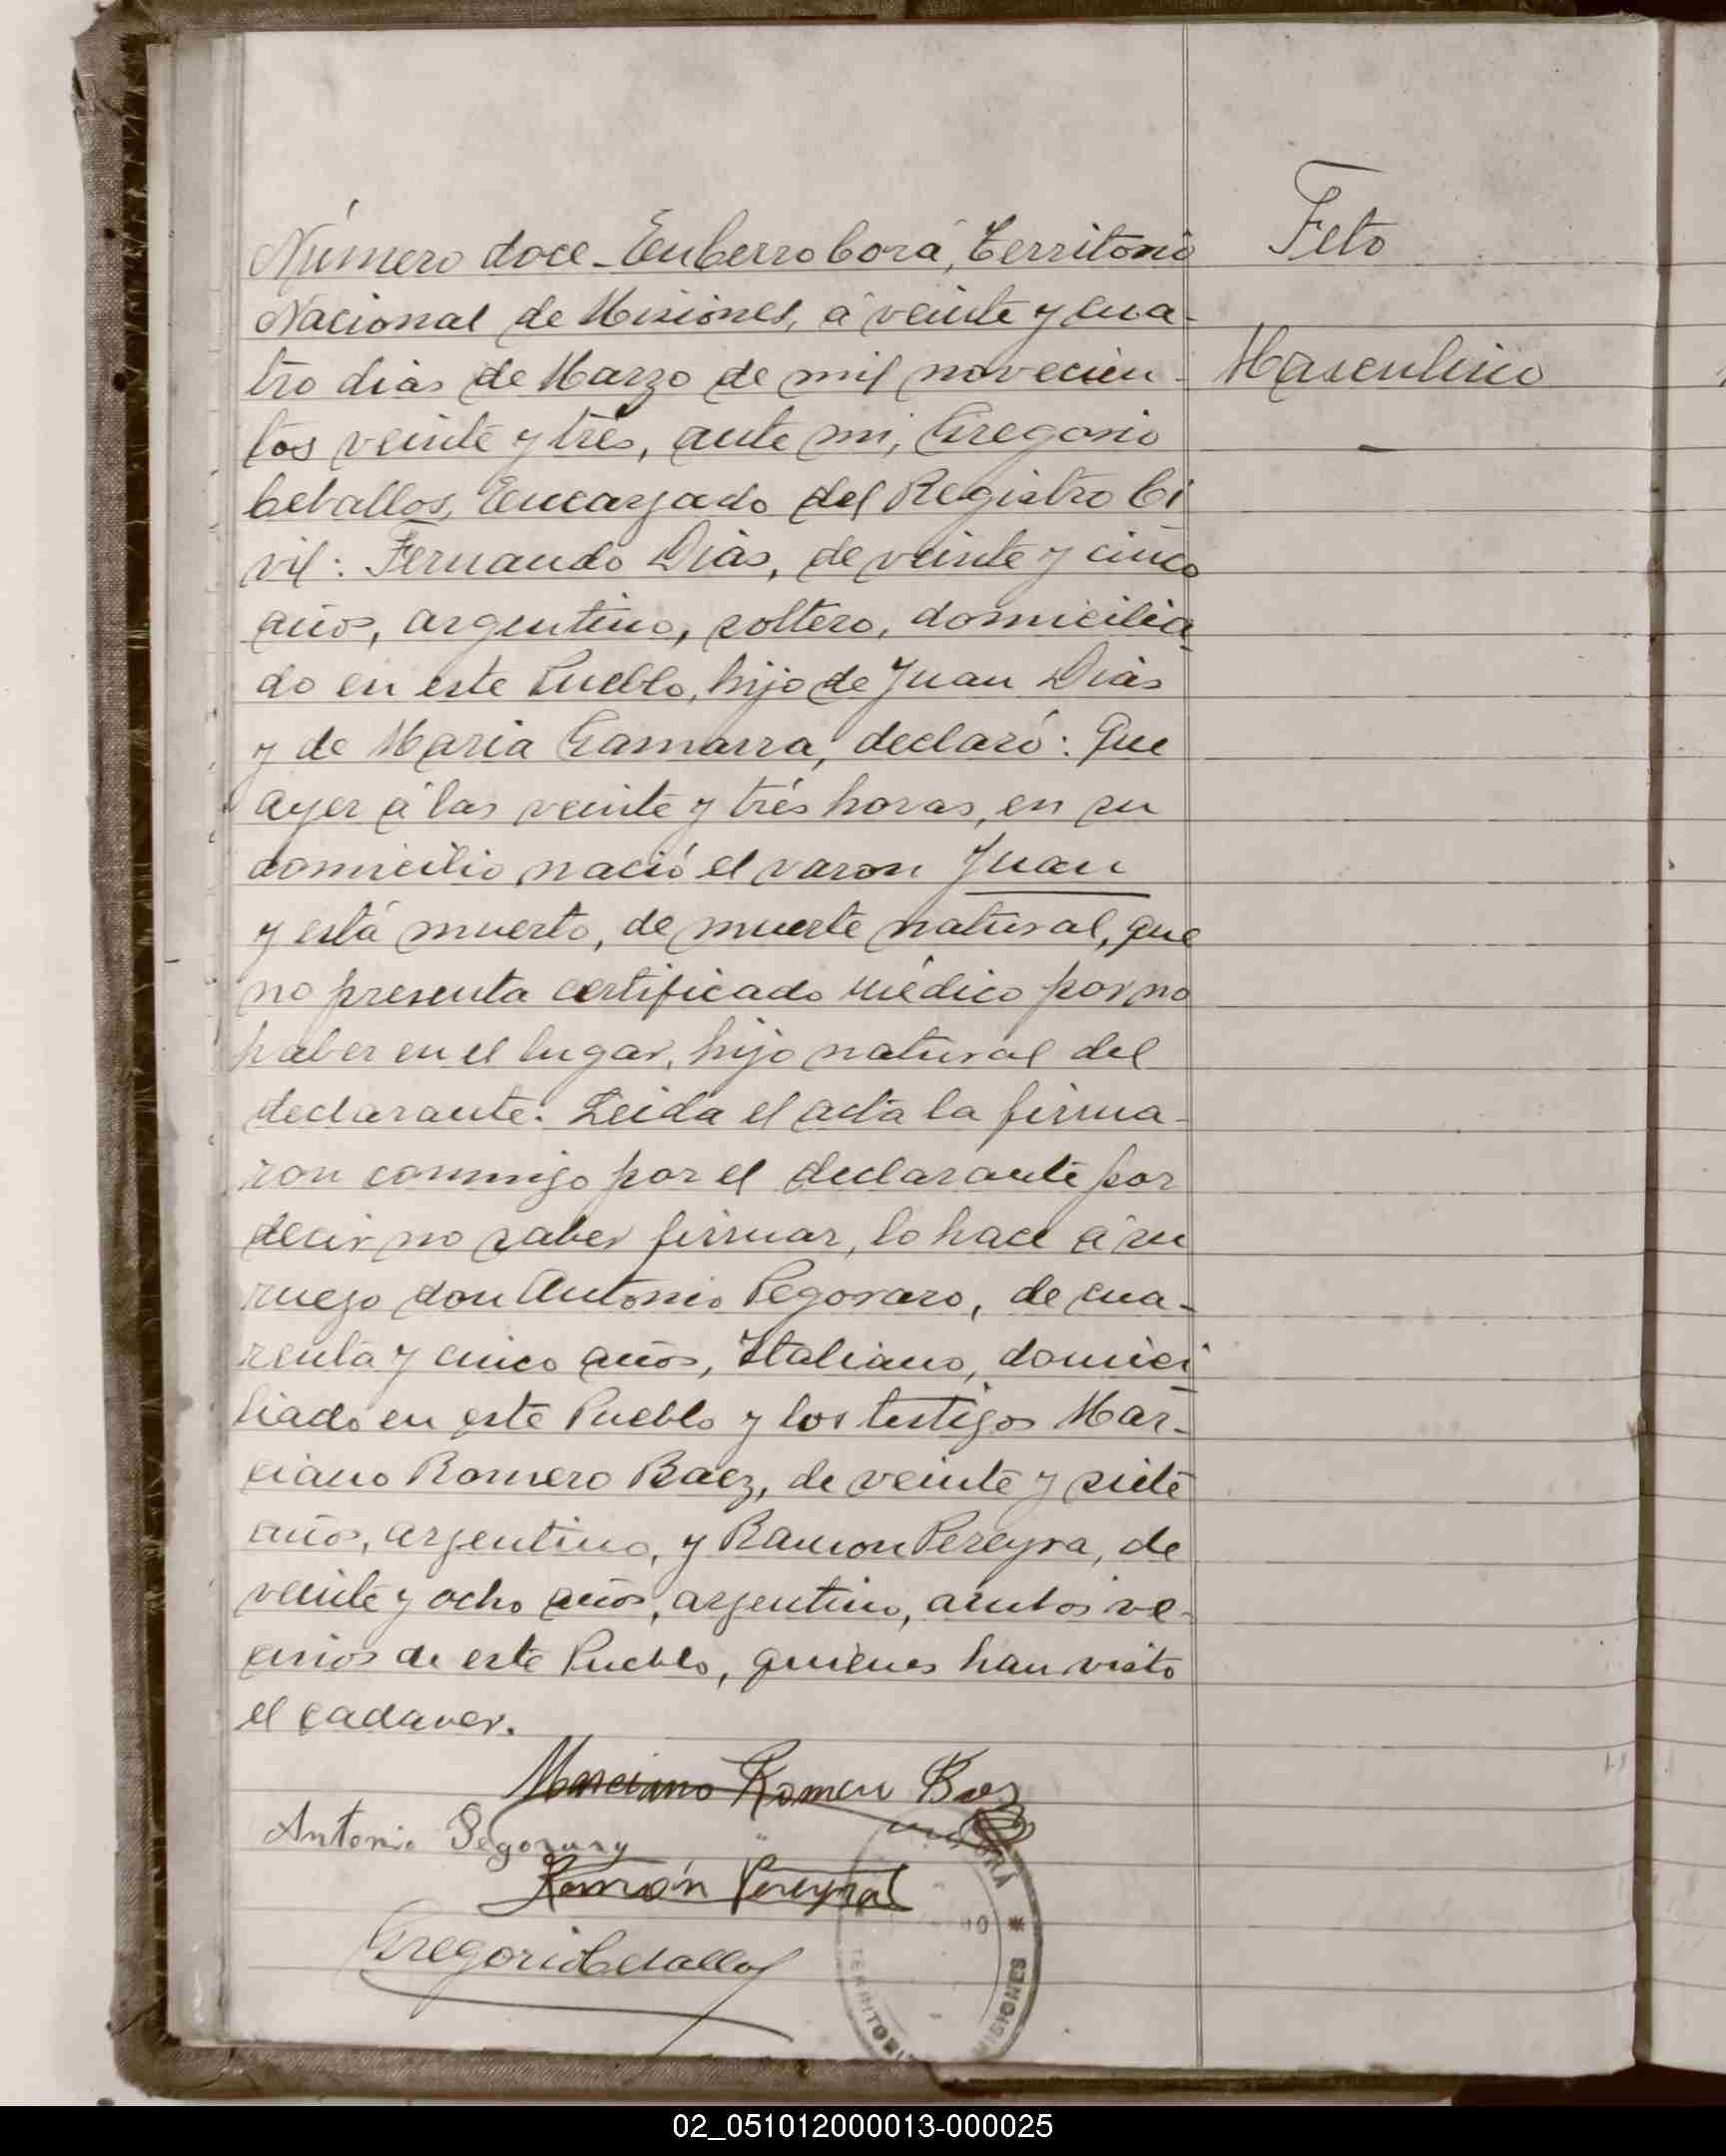 Feto
Masculino
—
Número doce - En Cerro Corá, Territorio
Nacional de Misiones, á veinte y cua-
tro dias de Marzo de mil novecien-
tos veinte y trés, ante mi, Gregorio
Ceballos, Encargado del Registro Ci
vil: Fernando Dias, de veinte y cinco
años, argentino, soltero, domicilia
do en este Pueblo, hijo de Juan Dias
y de Maria Gamarra, declaró: Que
ayer á las veinte y trés horas, en su
domicilio nació el varon Juan
y está muerto, de muerte natural, que
no presenta certificado médico por no
haber en el lugar, hijo natural del
declarante. Leida el acta la firma-
ron conmigo por el declarante por
decir no saber firmar, lo hace á su
ruego don Antonio Pegoraro, de cua-
renta y cinco años, Italiano, domici
liado en este Pueblo y los testigos Mar-
ciano Romero Baez, de veinte y siete
años, argentino, y Ramon Pereyra, de
veinte y ocho años, argentino, ambos ve-
cinos de este Pueblo, quienes han visto
el cadaver.
Marciano Romero Baez
Antonio Pegoraro
Ramón Pereyra
Gregorio Ceballos
MISIONES
02_051012000013-000025